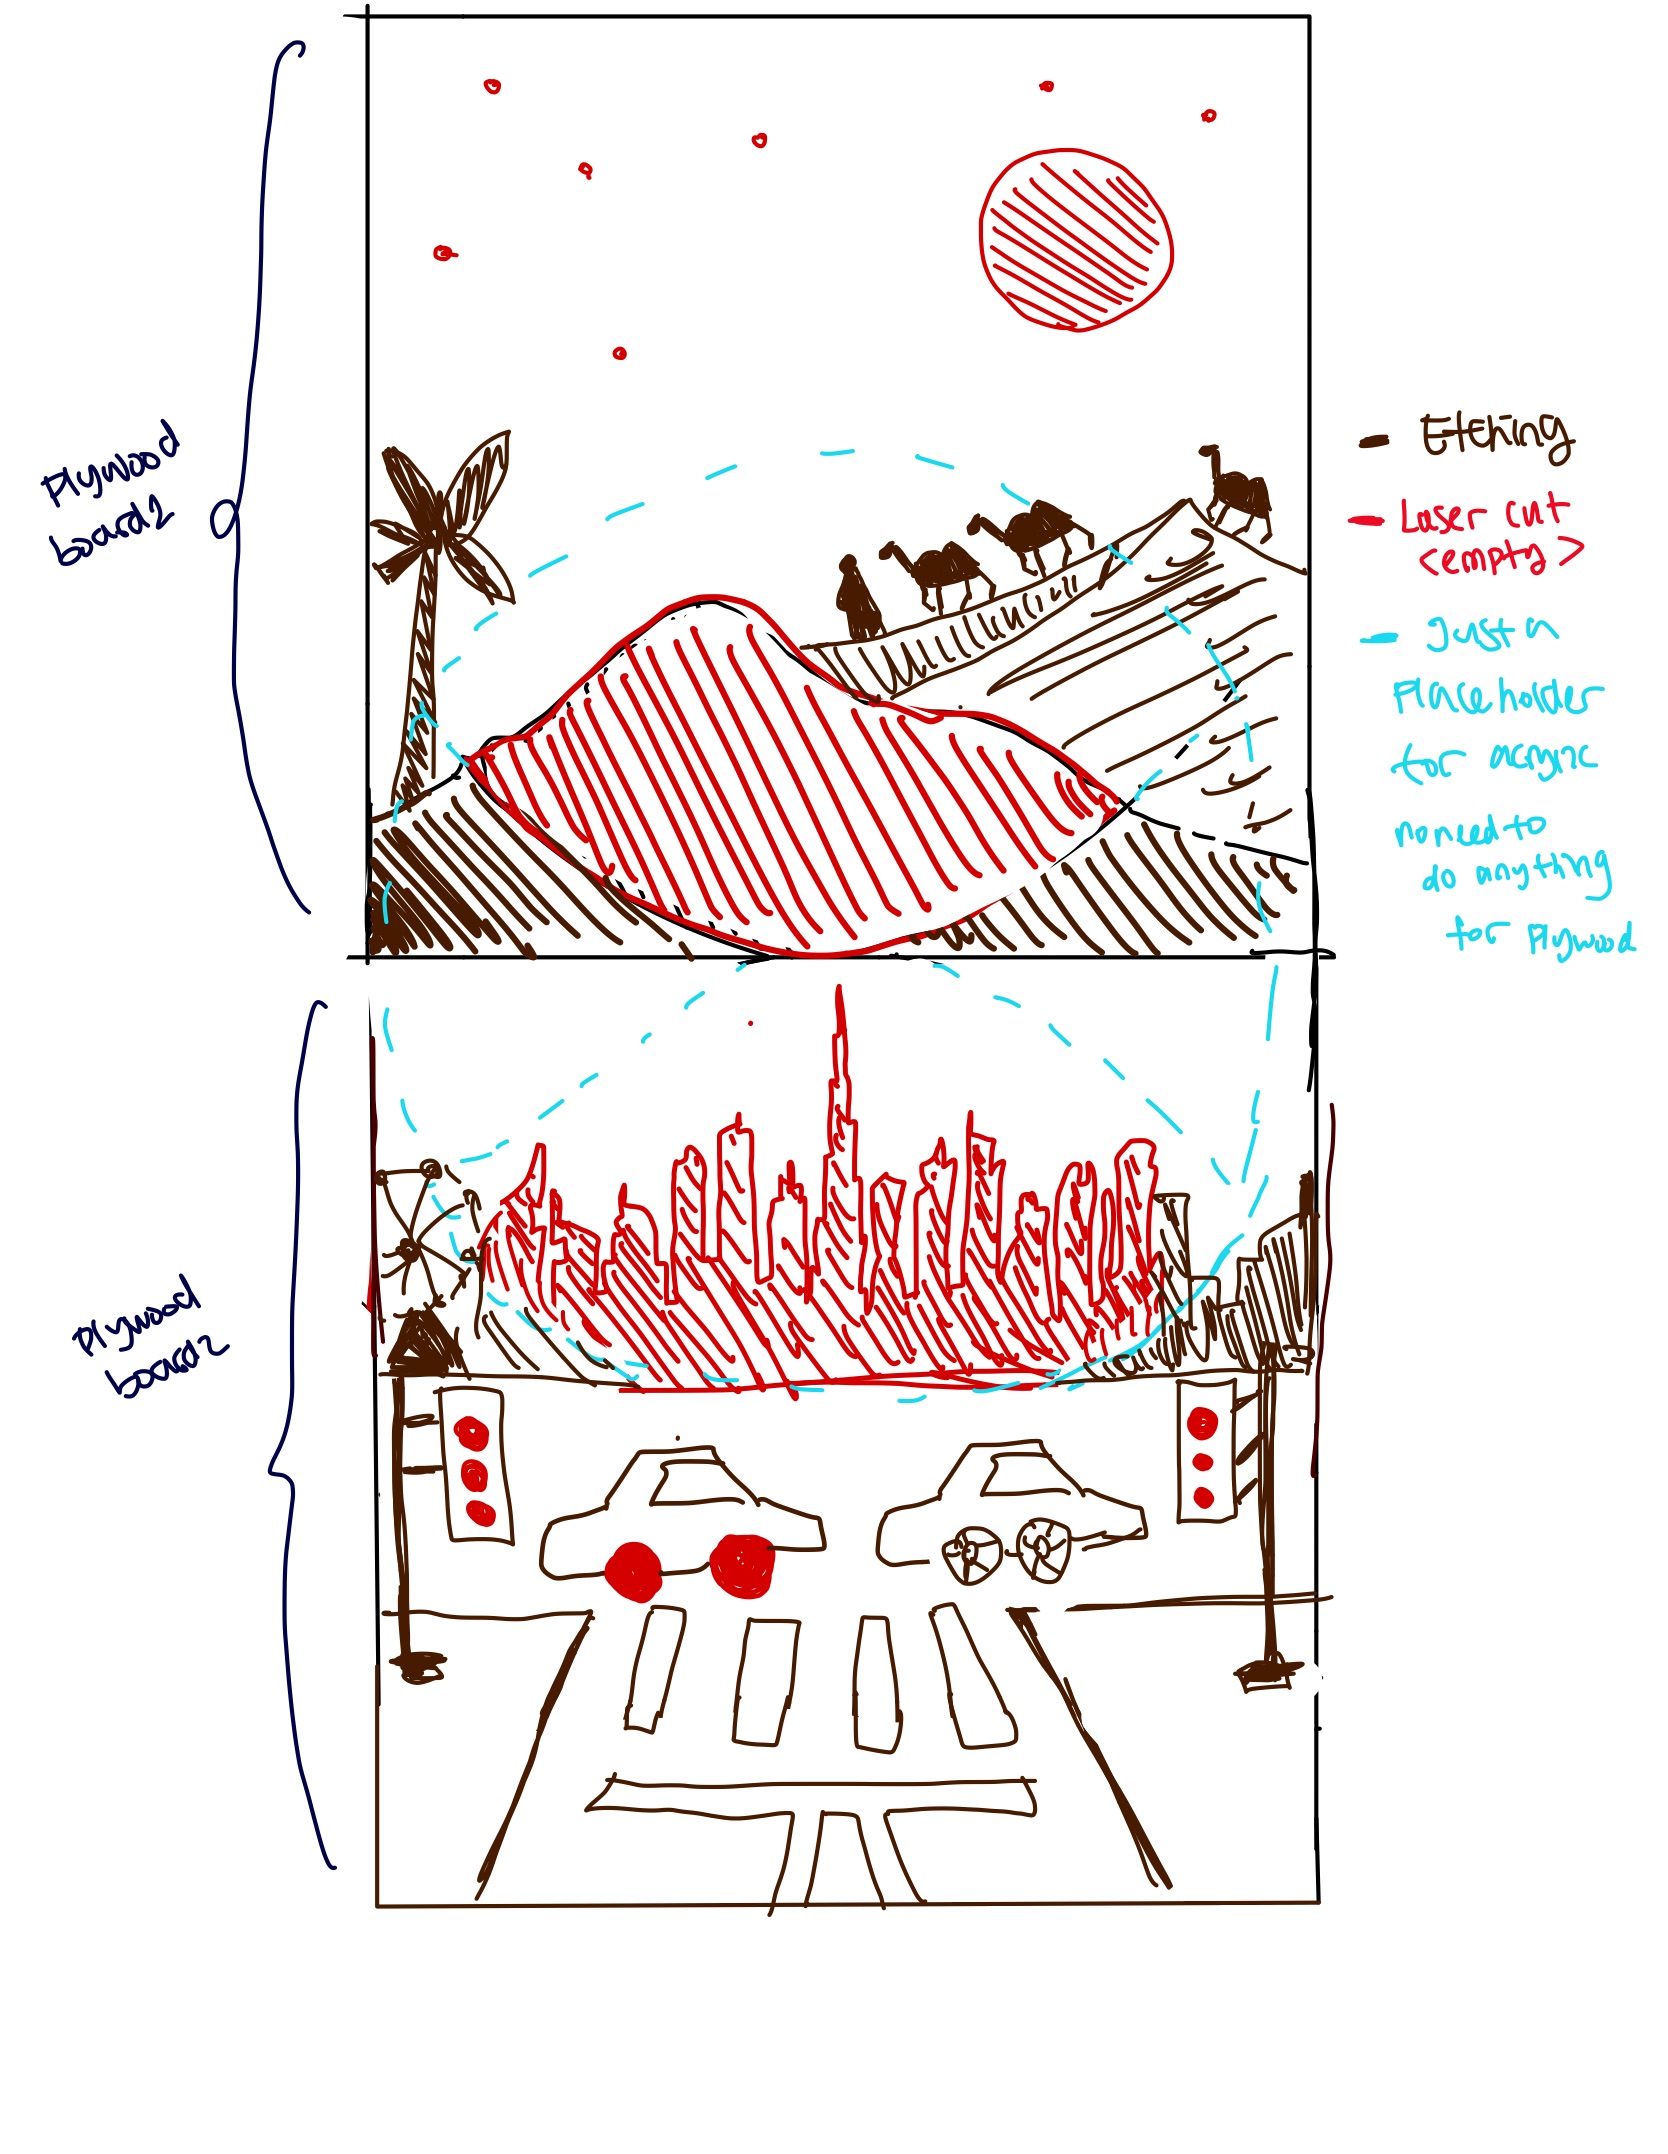 Plywood
board 2
Etching
Laser cut
<empty>
Just an
Placeholder
for acrylic
no need to
do anything
for plywood
Plywood
board 2